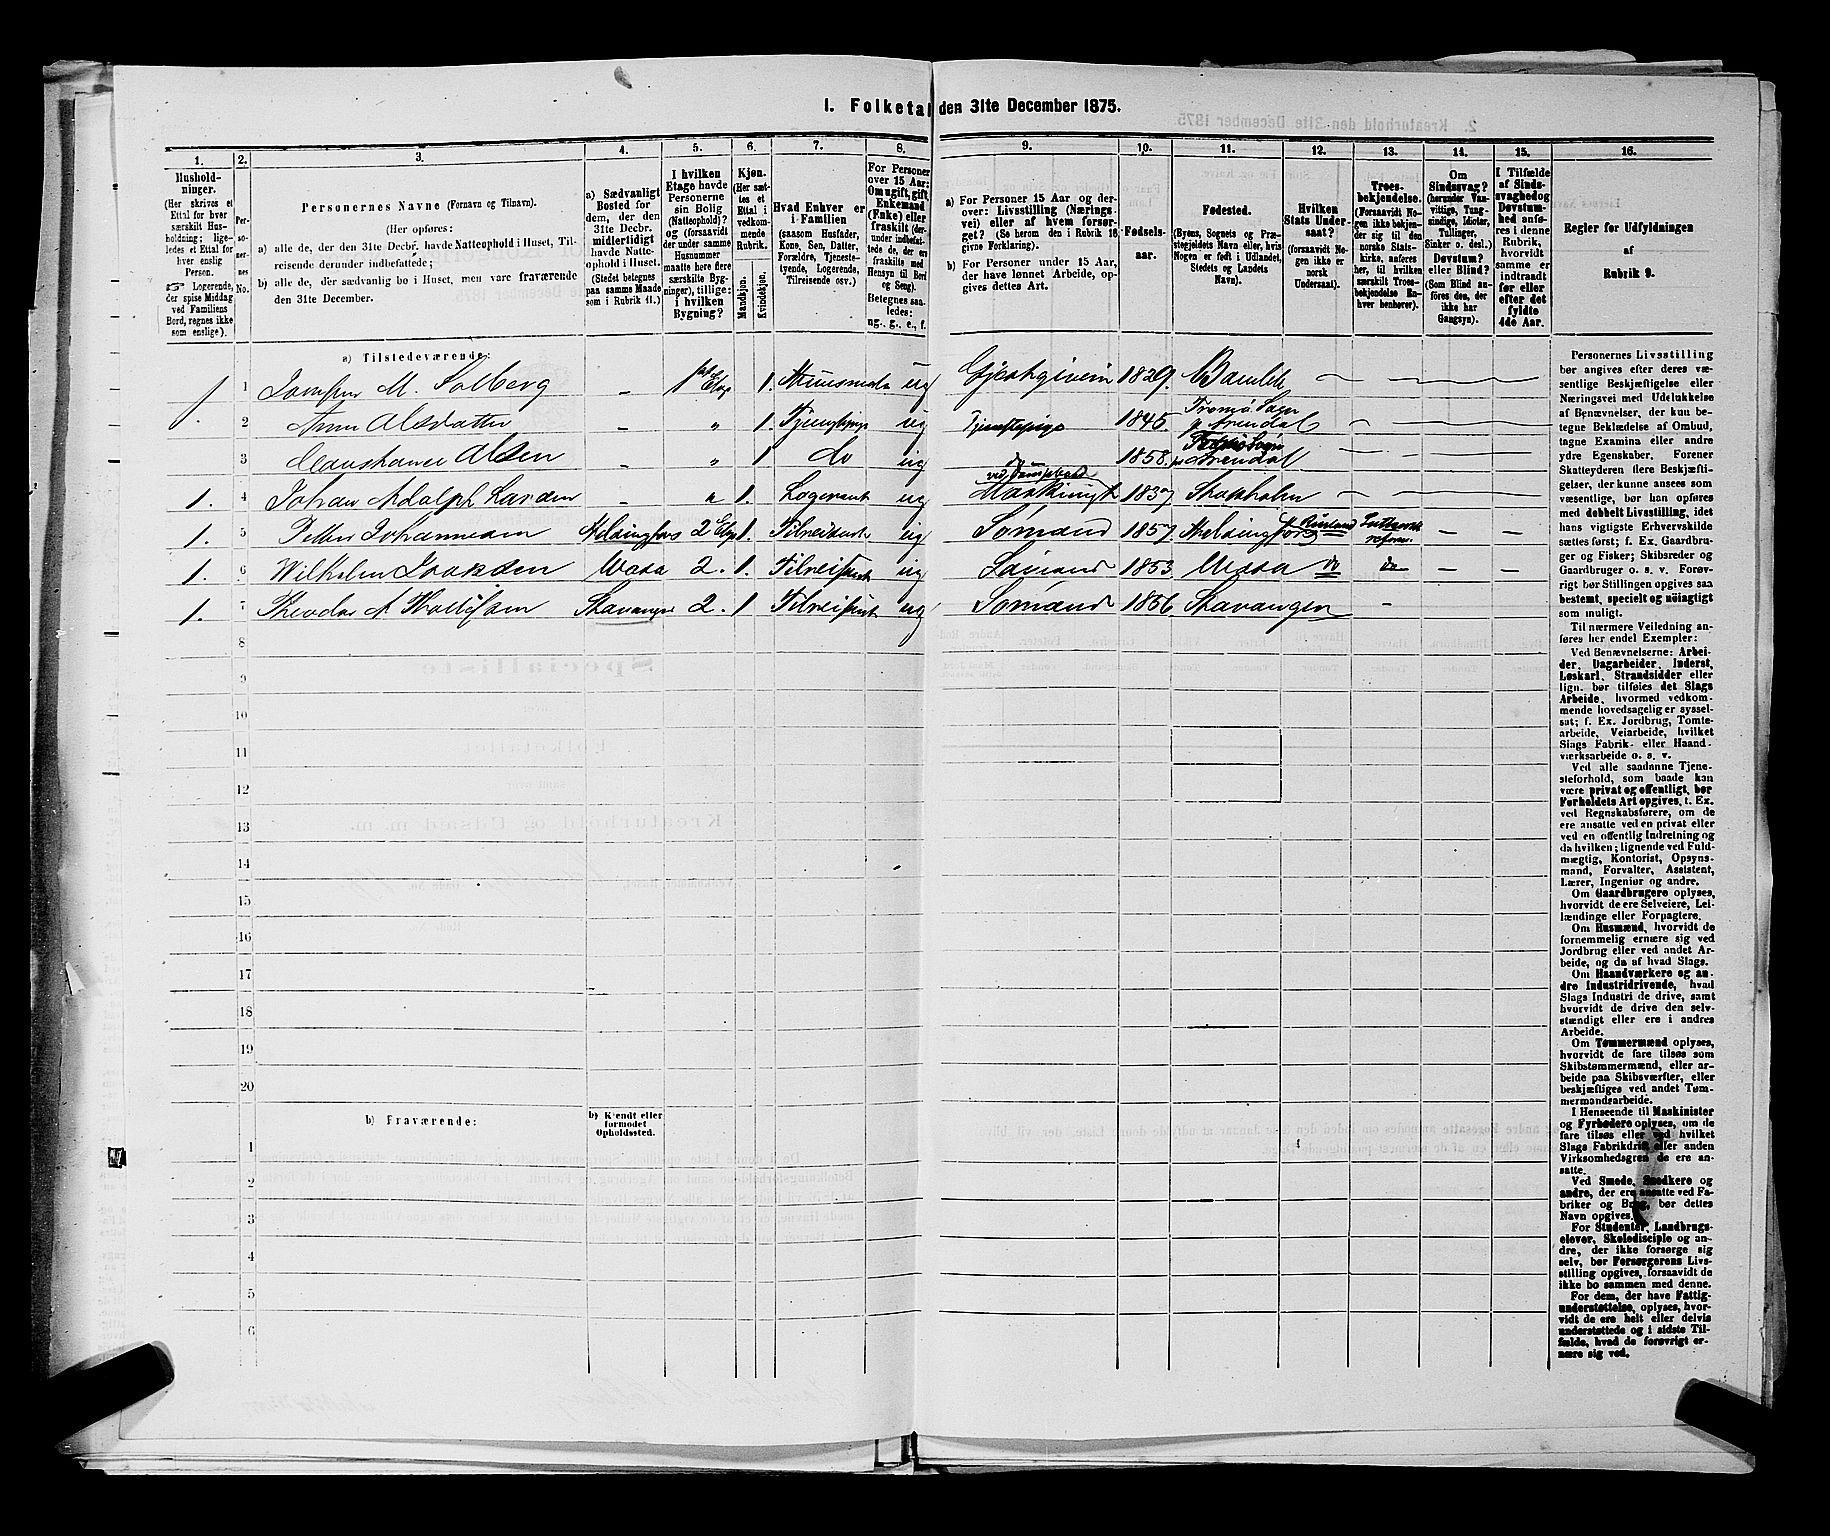 I. Folketal den 31te December 1875.
1.
2.
3.
4.
5.
6.
7.
8.
9.
10.
11.
12.
13.
14.
15.
16.
Hushold-
ninger.
(Her skrives et
Ettal for hver
særskilt Hus-
holdning; lige-
ledes et Ettal for
hver enslig
Person.
Logerende,
der spise Middag
ved Familiens
Bord, regnes ikke
som enslige).
Per-
so-
ner-
nes
No.
Personernes Navne (Fornavn og Tilnavn).
(Her opføres:
a) alle de, der den 31te Decbr. havde Natteophold i Huset, Til-
reisende derunder indbefattede;
b) alle de, der sædvanlig bo i Huset, men vare fraværende
den 31te December.
a) Sædvanligt
Bosted for
dem, der den
31te Decbr.
midlertidigt
havde Natte-
ophold i Huset.
(Stedet betegnes
paa samme Maade
som i Rubrik 11.)
I hvilken
Etage havde
Personerne
sin Bolig
(Natteophold)?
og (forsaavidt
der under samme
Husnummer
maatte høre flere
særskilte Byg-
ninger), tillige:
i hvilken
Bygning?
Kjøn.
(Her sæt-
tes et
Ettal i
vedkom-
mende
Rubrik.
Mandkjøn.
Kvindekjøn.
Hvad Enhver er
i Familien
(saasom Husfader,
Kone, Søn, Datter,
Forældre, Tjeneste-
tyende, Logerende,
Tilreisende osv.)
For Personer
over 15 Aar:
Om ugift, gift,
Enkemand
(Enke) eller
fraskilt (der-
under indbefat-
tede de, der ere
fraskilte med
Hensyn til Bord
og Seng).
Betegnes saa-
ledes:
ug., g., e., f.
a) For Personer 15 Aar og der-
over: Livsstilling (Nærings-
vei) eller af hvem forsør-
get? (Se herom den i Rubrik 16
givne Forklaring).
b) For Personer under 15 Aar,
der have lønnet Arbeide, op-
gives dettes Art.
Fødsels-
aar.
Fødested.
(Byens, Sognets og Præ-
stegjeldets Navn eller, hvis
Nogen er født i Udlandet,
Stedets og Landets
Navn).
Hvilken
Stats Under-
saat?
(forsaavidt No-
gen ikke er
norsk
Undersaat).
Troes-
bekjendelse.
(Forsaavidt No-
gen ikke bekjen-
der sig til den
norske Stats-
kirke, anføres
her, til hvilken
særskilt Troes-
bekjendelse En-
hver henhører).
Om
Sindssvag?
(herunder Van-
vittige, Tung-
sindige, Idioter,
Tullinger,
Sinker o. desl.)
Døvstum?
eller Blind?
(Som Blind an-
føres den, der
ikke har
Gangsyn).
I Tilfælde
af Sinds-
svaghed og
Døvstum-
hed anfø-
res i denne
Rubrik,
hvorvidt
samme er
indtraadt
før eller
efter det
fyldte
4de Aar.
Regler for Udfyldningen
af
Rubrik 9.
a) Tilstedeværende:
1. 1 M. Solberg 1ste Etag 1. ug Gjestgiverie 1829. Bamble
2 Anna Alsdatter " 1. ug Tjenestepige 1845. Tromø Sogn p Arendal
3 Constance Alsen " 1 do ug do 1858. Tromø Sogn p Arendal
1. 4 Johan Adolph - " 1. Logerant ug ved 1837 Stockholm
1. 5 Petter Johannesen Helsingfors 2 Etag 1. Tilreisent ug Sømand 1857 Helsingfors Finland Luthersk reform. - -
1. 6 Wilhelm Wasa 2. 1. Tilreisent ug Sømand 1853 Wasa do do - -
1. 7 Theodor A Stavanger 2. 1 Tilreisent ug Sømand 1856 Stavanger -
8
9
10
11
12
13
14
15
16
17
18
19
20
b) Fraværende:
b) Kjendt eller
formodet
Opholdssted.
1
2
3
4
5
6
Personernes Livsstilling
bør angives efter deres væ-
sentlige Beskjæftigelse eller
Næringsvei med Udelukkelse
af Benævnelser, der kun be-
tegne Beklædelse af Ombud,
tagne Examina eller andre
ydre Egenskaber. Forener
Skatteyderen flere Beskjæfti-
gelser, der kunne ansees som
væsentlige, bør han opføres
med dobbelt Livsstilling, idet
hans vigtigste Erhvervskilde
sættes først; f. Ex. Gaardbru-
ger og Fisker; Skibsreder og
Gaardbruger o. s. v. Forøv-
rigt bør Stillingen opgives saa
bestemt, specielt og nøiagtigt
som muligt.
Til nærmere Veiledning an-
føres her endel Exempler:
Ved Benævnelserne: Arbei-
der, Dagarbeider, Inderst,
Løskarl, Strandsidder eller
lign. bør tilføies det Slags
Arbeide, hvormed vedkom-
mende hovedsagelig er syssel-
sat; f. Ex. Jordbrug, Tomte-
arbeide, Veiarbeide, hvilket
Slags Fabrik- eller Haand-
værksarbeide o. s. v.
Ved alle saadanne Tjene-
steforhold, som baade kan
være privat og offentligt, bør
Forholdets Art opgives, t. Ex.
ved Regnskabsførere, om de
ere ansatte ved en privat eller
ved en offentlig Indretning og
da hvilken; lignende ved Fuld-
mægtig, Kontorist, Opsyns-
mand, Forvalter, Assistent,
Lærer, Ingeniør og andre.
Om Gaardbrugere oplyses,
hvorvidt de ere Selveiere, Lei-
lændinge eller Forpagtere.
Om Husmænd, hvorvidt de
fornemmelig ernære sig ved
Jordbrug eller ved andet Ar-
beide, og da af hvad Slags.
Om Haandværkere og an-
dre Industridrivende, hvad
Slags Industri de drive, samt
hvorvidt de drive den selv-
stændigt eller ere i andres
Arbeide.
Om Tømmermænd oplyses,
hvorvidt de fare tilsøs som
Skibstømmermænd, eller ar-
beide paa Skibsværfter, eller
beskjæftiges ved andet Tøm-
mermandsarbeide.
I Henseende til Maskinister
og Fyrbødere oplyses, om de
fare tilsøs eller ved hvilket
Slags Fabrikdrift eller anden
Virksomhedsgren de ere an-
satte.
Ved Smede, Snedkere og
andre, der ere ansatte ved Fa-
briker og Brug, bør dettes
Navn opgives.
For Studenter, Landbrugs-
elever, Skoledisciple og an-
dre, der ikke forsørge sig
selv, bør Forsørgerens Livs-
stilling opgives, forsaavidt de
ikke bo sammen med denne.
For dem, der have Fattig-
understøttelse, oplyses, hvor-
vidt de ere helt eller delvis
understøttede og i sidste Til-
fælde, hvad de forøvrigt er-
nære sig ved.